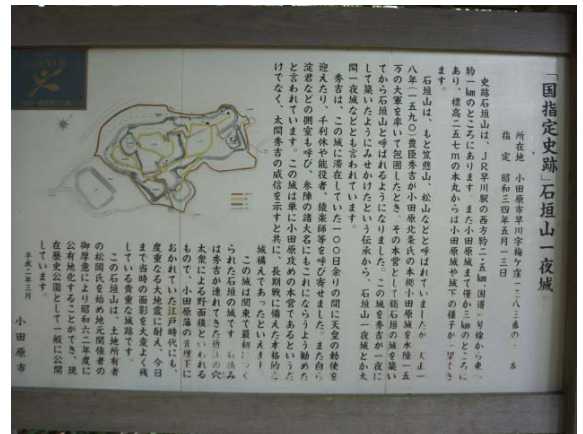 「国指定史跡」石垣山一夜城
所在地 小田原市早川字梅ケ窪一三八三番の
指定 昭和三四年五月一三日
史跡石垣山は、JR早川駅の西方約二・五㎞、国道一号線から東へ
約一㎞のところにあります。また小田原城まで僅か三㎞のところに
あり、標高二五七mの本丸からは小田原城や城下の様子が一望でき
ます。
石垣山は、もと笠懸山、松山などと呼ばれていましたが、天正一
八年(一五九〇)豊臣秀吉が小田原北条氏の本拠小田原城を水陸一五
万の大軍を率いて包囲したとき、その本営として総石垣の城を築い
てから石垣山と呼ばれるようになりました。この城を秀吉が一夜に
して築いたようにみせかけたという伝承から、石垣山一夜城とか太
閤一夜城などとも言われています。
秀吉は、この城に滞在していた一〇〇日余りの間に天皇の勅使を
迎えたり、千利休や能役者、猿楽師等を呼び寄せました。また自ら
淀君などの側室も呼び、参陣の諸大名にもこれにならうよう勧めた
と言われています。この城は単に小田原攻めの本営であるというだ
けでなく、太閤秀吉の威信を示すと共に、長期戦に備えた本格的な
城構えであったといえます。
この城は関東で最初につく
られた石垣の城です。石積み
は秀吉が連れてきた近江の穴
太衆による野面積といわれる
もので、小田原藩の管理下に
おかれていた江戸時代にも、
度重なる大地震に耐え、今日
まで当時の面影を大変よく残
している貴重な城跡です。
この石垣山は、土地所有者
の松岡氏を始め地元関係者の
御厚意により昭和六二年度に
公有地化することができ、現
在歴史公園として一般に公開
しています。
平成二年三月
小田原市